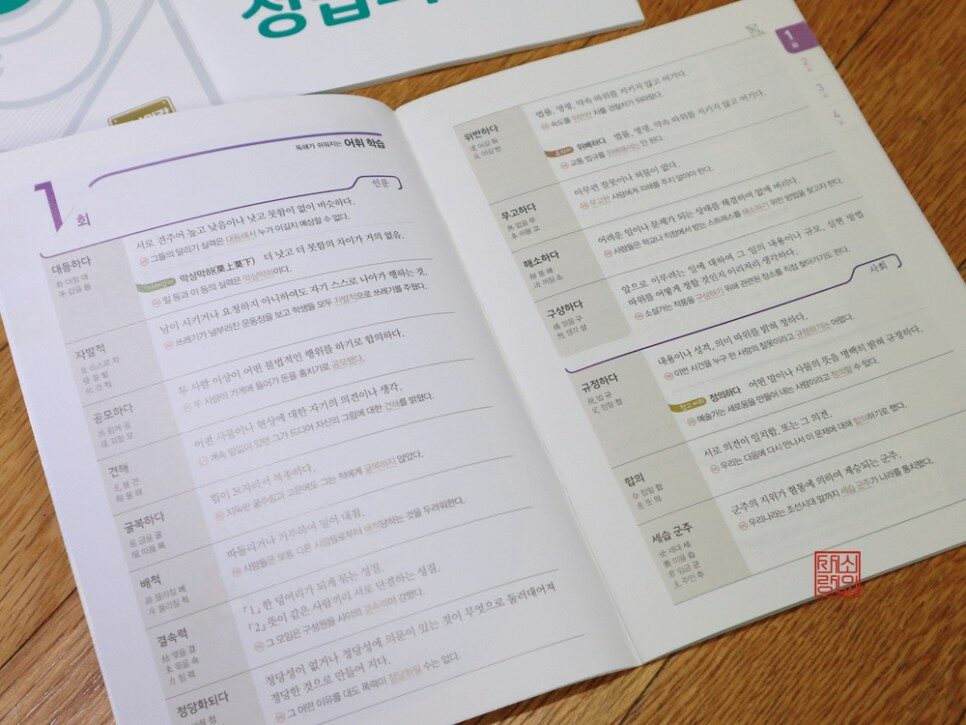 정답과
독해가 쉬워지는 어휘 학습
1회
인문
대등하다
對 대할 대
等 같을 등
서로 견주어 높고 낮음이나 낫고 못함이 없이 비슷하다.
그들의 달리기 실력은 대등해서 누가 이길지 예상할 수 없다.
막상막하(莫上莫下) 더 낫고 더 못함의 차이가 거의 없음.
일 등과 이 등의 실력은 막상막하이다.
자발적
自 스스로 자
發 필 발
的 것 적
남이 시키거나 요청하지 아니하여도 자기 스스로 나아가 행하는 것.
쓰레기가 널부러진 운동장을 보고 학생들 모두 자발적으로 쓰레기를 주웠다.
공모하다
共 함께 공
謀 꾀할 모
두 사람 이상이 어떤 불법적인 행위를 하기로 합의하다.
두 사람이 가게에 들어가 돈을 훔치기로 공모했다.
견해
見 볼 견
解 풀 해
어떤 사물이나 현상에 대한 자기의 의견이나 생각.
계속 말없이 있던 그가 드디어 자신의 그림에 대한 견해를 밝혔다.
굴복하다
屈 굽을 굴
服 따를 복
힘이 모자라서 복종하다.
지독한 굶주림과 고문에도 그는 적에게 굴복하지 않았다.
배척
排 물리칠 배
斥 물리칠 척
따돌리거나 거부하여 밀어 내침.
사람들은 보통 다른 사람들로부터 배척당하는 것을 두려워한다.
결속력
結 맺을 결
束 묶을 속
力 힘 력
「1」 한 덩어리가 되게 묶는 성질.
「2」 뜻이 같은 사람끼리 서로 단결하는 성질.
그 모임은 구성원들 사이의 결속력이 강했다.
정당화되다
정당성이 없거나 정당성에 의문이 있는 것이 무엇으로 둘러대어져
정당한 것으로 만들어 지다.
그 어떤 이유를 대도 폭력이 정당화될 수는 없다.
1회
2
3
4
위반하다
違 어길 위
反 어길 반
법률, 명령, 약속 따위를 지키지 않고 어기다.
속도를 위반한 차를 경찰차가 뒤따랐다.
위배하다 법률, 명령, 약속 따위를 지키지 않고 어기다.
교통 법규를 위배해서는 안 된다.
무고하다
無 없을 무
辜 허물 고
아무런 잘못이나 허물이 없다.
무고한 사람에게 피해를 주지 말아야 한다.
해소하다
解 풀 해
消 꺼질 소
어려운 일이나 문제가 되는 상태를 해결하여 없애 버리다.
사람들은 학교나 직장에서 받는 스트레스를 해소하기 위한 방법을 찾고자 한다.
구상하다
構 얽을 구
想 생각 상
앞으로 이루려는 일에 대하여 그 일의 내용이나 규모, 실현 방법
따위를 어떻게 정할 것인지 이리저리 생각하다.
소설가는 작품을 구상하기 위해 관련된 장소를 직접 찾아가기도 한다.
사회
규정하다
規 법 규
定 정할 정
내용이나 성격, 의미 따위를 밝혀 정하다.
이번 사건을 누구 한 사람의 잘못이라고 규정하기는 어렵다.
정의하다 어떤 말이나 사물의 뜻을 명백히 밝혀 규정하다.
예술가는 새로움을 만들어 내는 사람이라고 정의할 수 있다.
합의
合 합할 합
意 뜻 의
서로 의견이 일치함. 또는 그 의견.
우리는 다음에 다시 만나서 이 문제에 대해 합의하기로 했다.
세습 군주
世 세대 세
襲 이음 습
君 임금 군
主 주인 주
군주의 지위가 혈통에 의하여 계승되는 군주.
우리나라는 조선시대 말까지 세습 군주가 나라를 통치했다.